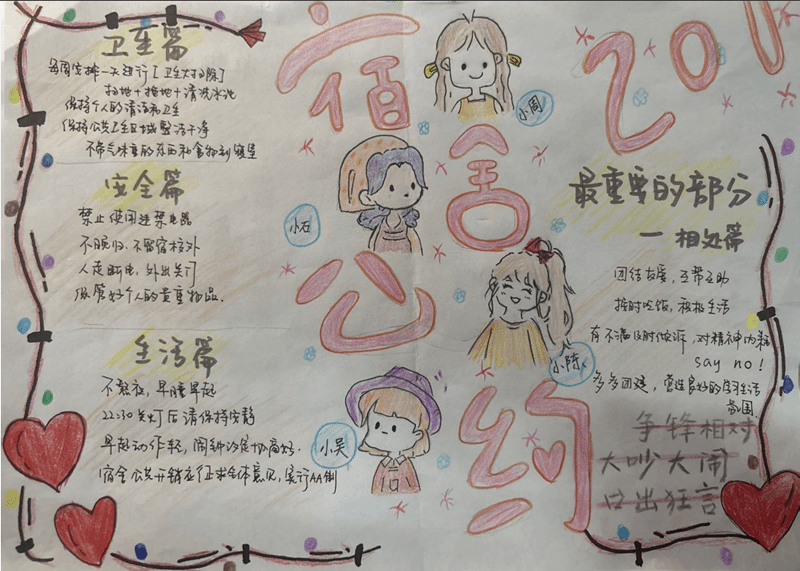 宿舍公约
201
卫生篇
每周安排一天进行[卫生大扫除]
扫地+拖地+清洗水池
保持个人的清洁和卫生
保持公共卫生区域整洁干净
不带气味重的东西和食物到寝室
安全篇
禁止使用违禁电器
不晚归、不留宿校外
人走断电，外出关门
保管好个人的贵重物品.
生活篇
不熬夜，早睡早起
22:30关灯后请保持安静
早起动作轻，闹钟沟通协商好.
宿舍公共开销应征求全体意见，实行AA制
小周
小石
小陈
小吴
最重要的部分
一相处篇
团结友爱，互帮互助
按时吃饭，积极生活
有不满及时倾诉，对精神内耗
say no!
多多团建，营造良好的学习生活
氛围.
争锋相对
大吵大闹
口出狂言